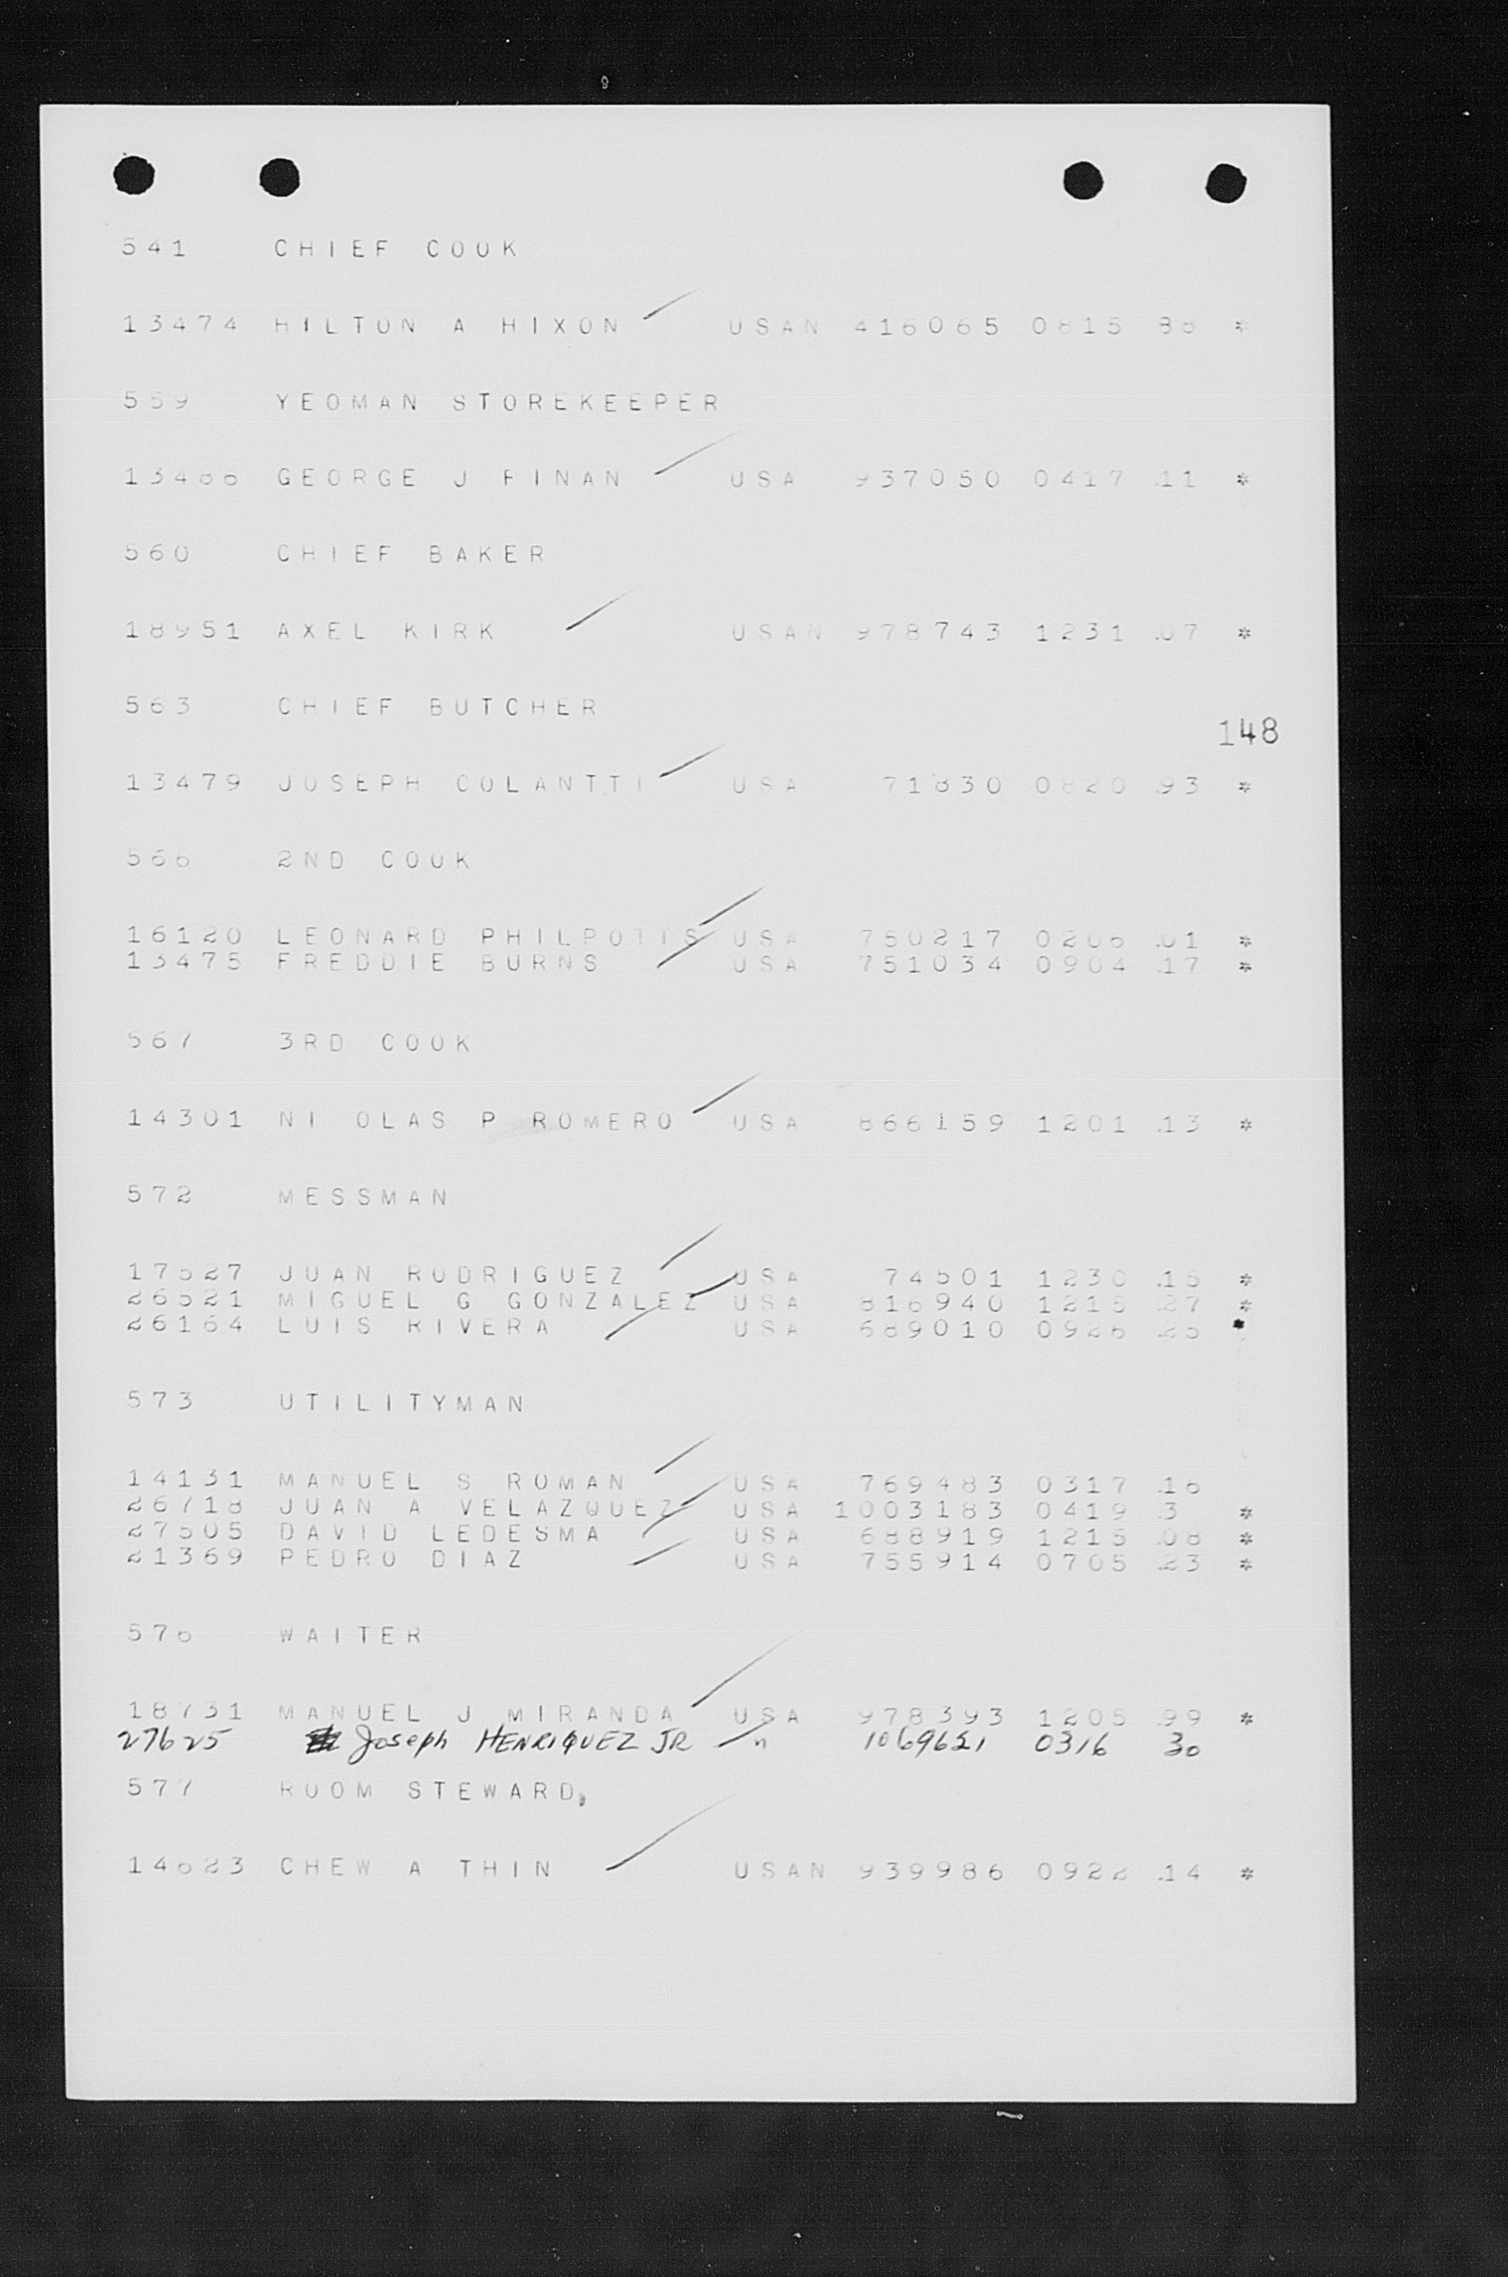 541 CHIEF COOK
13474 HILTON A HIXON USAN 416065 0815 88 *
559 YEOMAN STOREKEEPER
13486 GEORGE J FINAN USA 937050 0417 11 *
560 CHIEF BAKER
18951 AXEL KIRK USAN 978743 1231 07 *
563 CHIEF BUTCHER
148
13479 JOSEPH COLANTTI USA 71830 0820 93 *
566 2ND COOK
16120 LEONARD PHILPOTTS USA 750217 0206 01 *
13475 FREDDIE BURNS USA 751034 0904 17 *
567 3RD COOK
14301 NI OLAS P ROMERO USA 866159 1201 13 *
572 MESSMAN
17527 JUAN RODRIGUEZ USA 74501 1230 15 *
26521 MIGUEL G GONZALEZ USA 816940 1215 27 *
26164 LUIS RIVERA USA 689010 0926 25 *
573 UTILITYMAN
14131 MANUEL S ROMAN USA 769483 0317 16
26718 JUAN A VELAZQUEZ USA 1003183 0419 3 *
27505 DAVID LEDESMA USA 688919 1215 08 *
21369 PEDRO DIAZ USA 755914 0705 23 *
576 WAITER
18731 MANUEL J MIRANDA USA 978393 1205 99 *
27625 Joseph HENRIQUEZ JR " 1069621 0316 30
577 ROOM STEWARD
14623 CHEW A THIN USAN 939986 0922 14 *